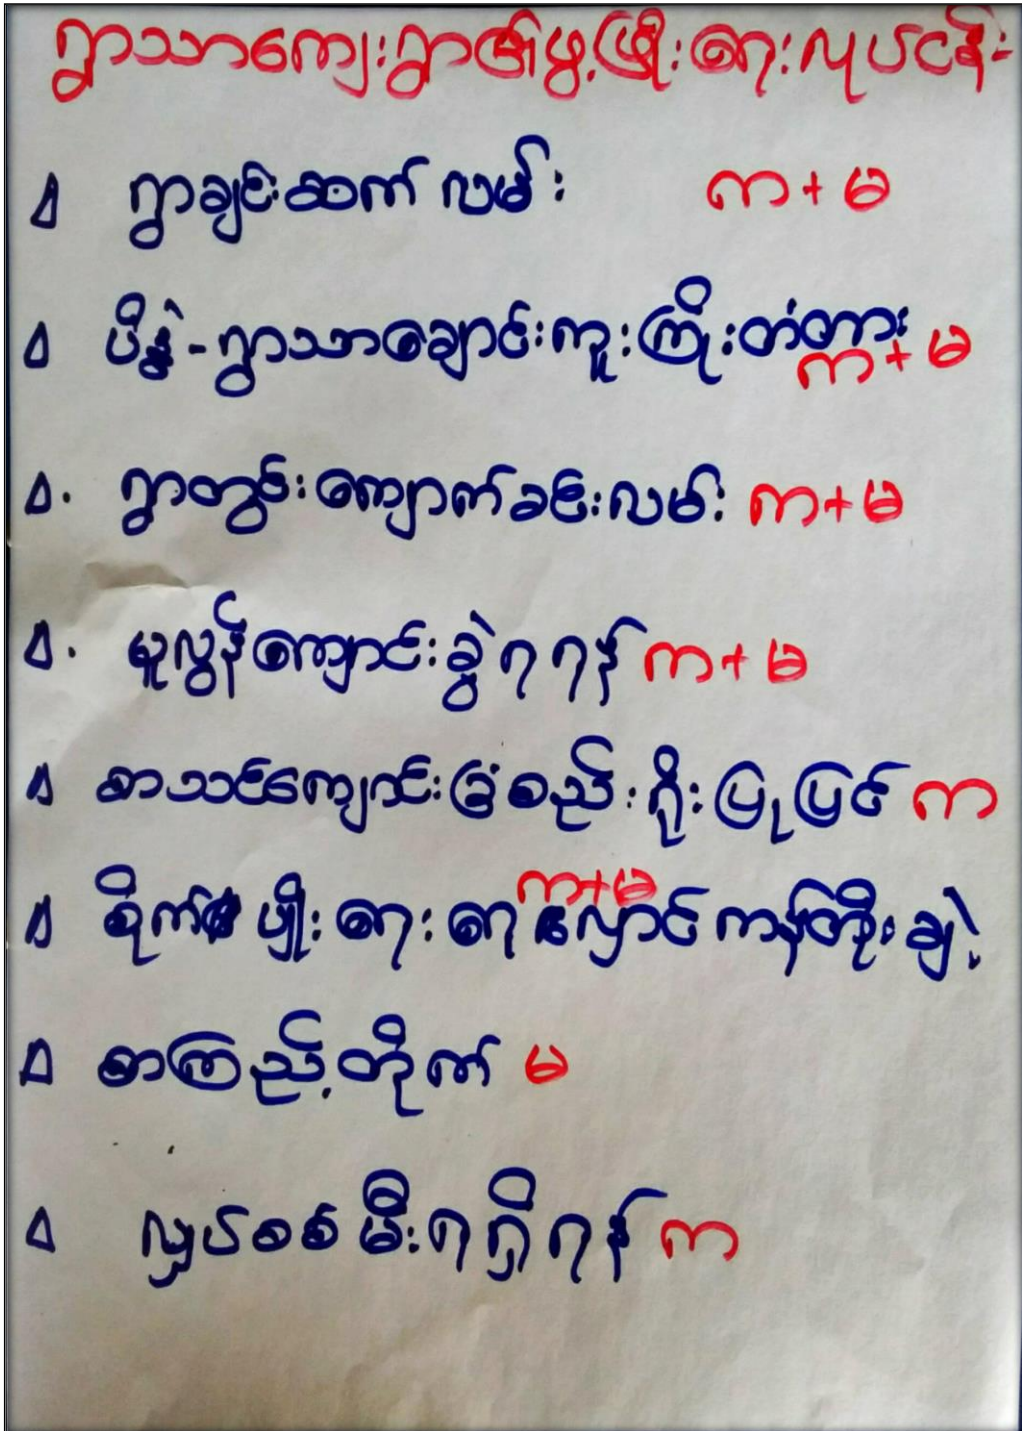 ရွာသာကျေးရွာ၏ဖွံ့ဖြိုးရေးလုပ်ငန်း
∆ ရွာချင်းဆက် လမ်း က + မ
∆ ပိန္နဲ - ရွာသာချောင်းကူးကြိုးတံတား က + မ
∆. ရွာတွင်းကျောက်ခင်းလမ်း က + မ
∆. မူလွန်ကျောင်းခွဲ ရ ရန် က + မ
∆ စာသင်ကျောင်းခြံစည်းရိုး ပြုပြင် က
∆ စိုက်ပျိုးရေး ရေလှောင်ကန်တိုးချဲ့ က + မ
∆ စာကြည့်တိုက် မ
∆ လျှပ်စစ် မီးရရှိရန် က